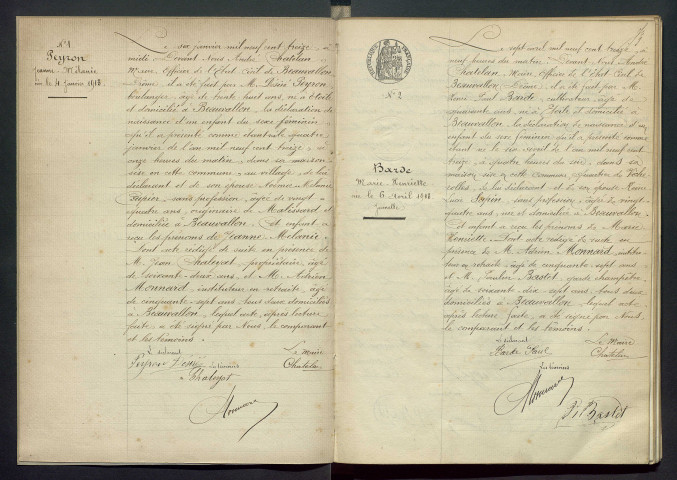 N° 1
Peyron
Jeanne-Mélanie
née le 4 Janvier 1913.
Le six janvier mil neuf cent treize, à
midi, Devant Nous André Chatelan
Maire, Officier de l'Etat Civil de Beauvallon
Drôme, il a été fait par M. Désiré Peyron
boulanger, âgé de trente huit ans, né à Etoile
et domicilié à Beauvallon, la déclaration de
naissance d'un enfant du sexe féminin
qu'il a présenté comme étant né le quatre
janvier de l'an mil neuf cent treize, à
onze heures du matin, dans sa maison
sise en cette commune, au village, de lui
déclarant et de son épouse Noémie Mélanie
sans profession, âgée de vingt
quatre ans, originaire de Malissard et
domiciliée à Beauvallon. Cet enfant a
reçu les prénoms de Jeanne Mélanie.
Dont acte rédigé de suite en présence de
M. Jean Chaleyat, propriétaire, âgé
de soixante-deux ans, et M. Adrien
Monnard, instituteur en retraite, âgé
de cinquante-sept ans, tous deux domiciliés
à Beauvallon, lequel acte, après lecture
faite, a été signé par Nous, le comparant
et les témoins.
Le déclarant Le Maire
Peyron Les témoins Chatelan
Chaleyat
Monnard
N° 2
Barde
Marie-Henriette
née le 6 Avril 1913
Le sept avril mil neuf cent treize, à
neuf heures du matin, Devant Nous André
Chatelan, Maire, Officier de l'Etat Civil de
Beauvallon, Drôme, il a été fait par M.
Paul Barde, cultivateur, âgé de
quarante ans, né à Etoile et domicilié à
Beauvallon, la déclaration de naissance d'un
enfant du sexe féminin, qu'il a présenté comme
étant né le six avril de l'an mil neuf cent
treize, à quatre heures du soir, dans sa
maison, sise en cette commune, quartier de
de lui déclarant et de son épouse
sans profession, âgée de vingt
quatre ans, née et domiciliée à Beauvallon.
Cet enfant a reçu les prénoms de Marie
Henriette. Dont acte rédigé de suite en
présence de M. Adrien Monnard, instituteur
en retraite, âgé de cinquante sept ans
et M. Bastet, garde champêtre,
âgé de soixante dix sept ans, tous deux
domiciliés à Beauvallon, lequel acte
après lecture faite, a été signé par Nous,
le comparant et les témoins.
Le déclarant Le Maire
Barde Paul Chatelan
Les témoins
Monnard
Bastet